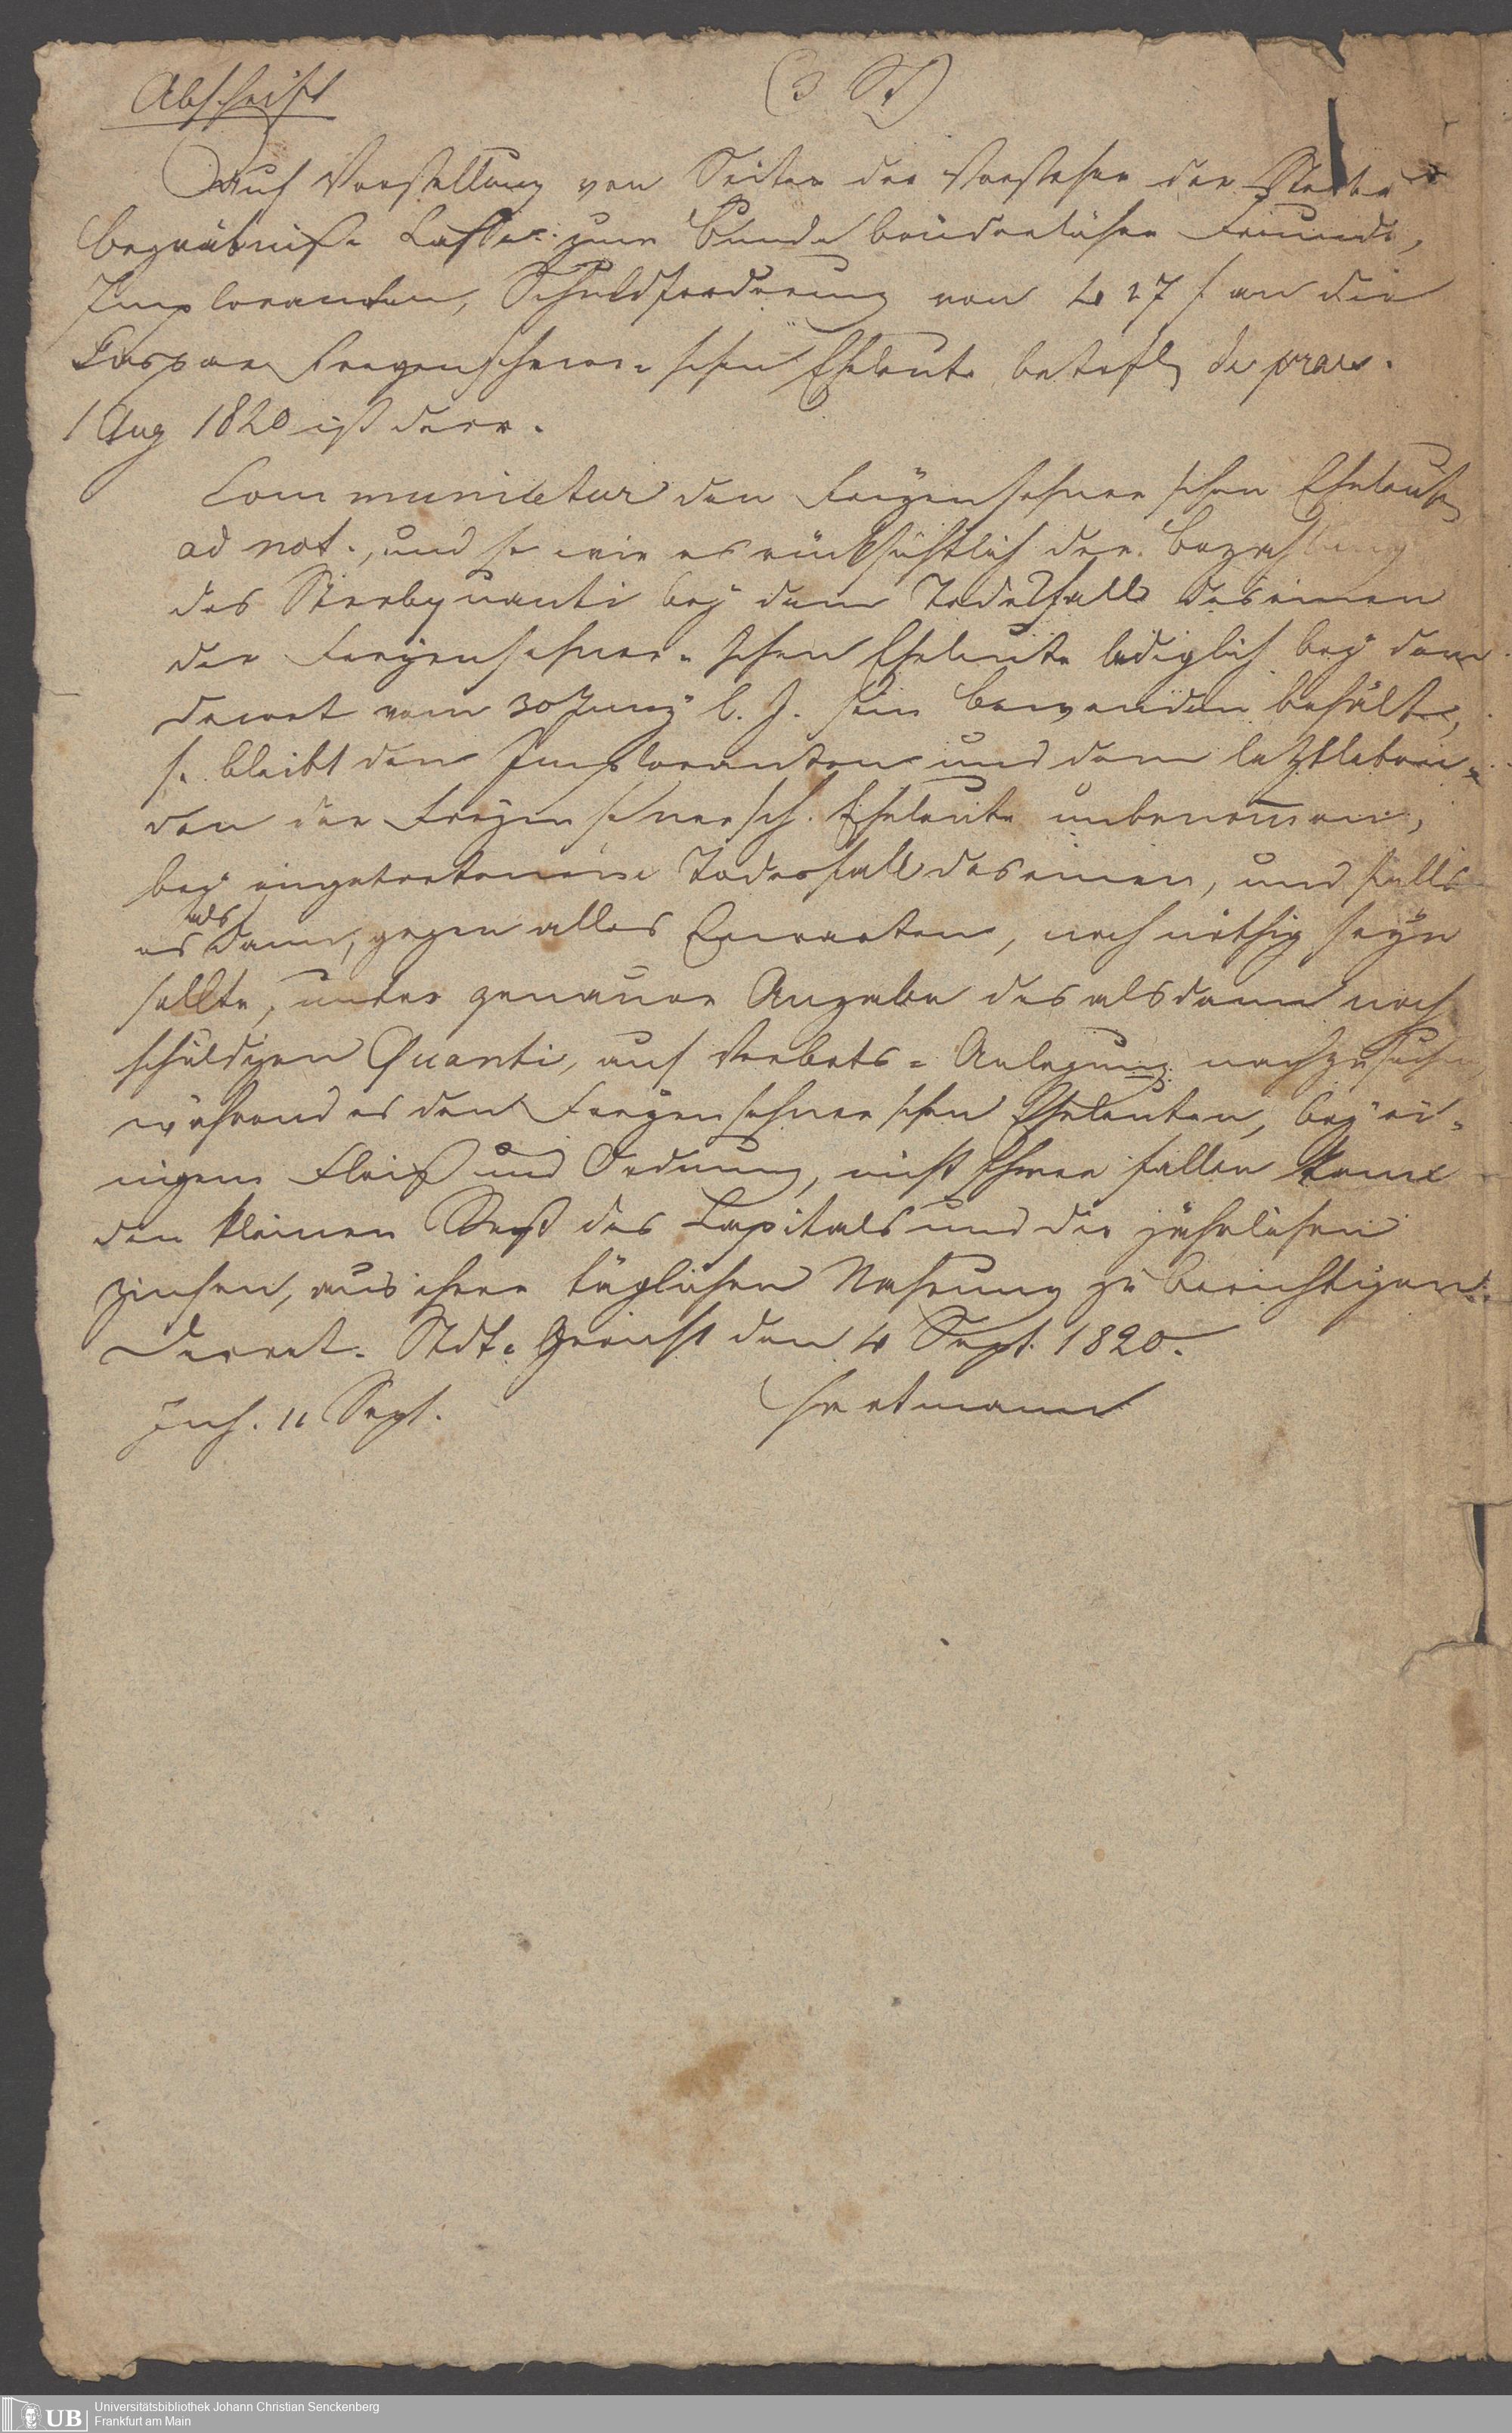 Abschrift
(3 St)
Auf Vorstellung von Seiten der Vorsteher der Sterbe
begräbniß- Casse: zum Bunde brüderlicher Freunde,
Imploranten, Schuldforderung von 427 f an die
Caspar schen Eheleute betrefd de praes.
1 Aug 1820 ist decr.
Communicetur den schen Eheleuten
ad not., und so wie es rücksichtlich der Bezahlung
des Sterbquanti bey dem Todesfall des einen
der schen Eheleute lediglich bey dem
Decret vom 30 Juny l. J. sein Bewenden behält,
so bleibt den Imploranten und dem letztleben-
den der Eheleute unbenommen,
bey eingetretenem Todesfall des einen, und falls
es alsdann, gegen alles Erwarten, noch nöthig seyn
sollte, unter genauer Angabe des alsdann noch
schuldigen Quanti, auf Verbots- Anlegung nachzusuchen,
während es den schen Eheleuten, bey ei-
nigem Fleiß und Ordnung, nicht schwer fallen kann
den kleinen Rest des Capitals und die jährlichen
Zinsen, aus ihrer täglichen Nahrung zu berichtigen.
Decret. Stdt. Gericht den 4 Sept. 1820.
Hartmann
Inh. 11 Sept.
UB Universitätsbibliothek Johann Christian Senckenberg
Frankfurt am Main